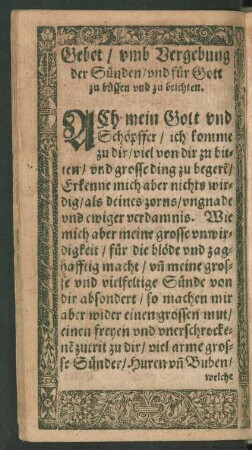 Gebet / vmb Vergebung
der Sünden / vnd für Gott
zu büssen vnd zu beichten.
ACh mein Gott vnd
Schöpffer / ich komme
zu dir / viel von dir zu bit-
ten / vnd grosse ding zu begerē /
Erkenne mich aber nichts wir-
dig / als deines zorns / vngnade
vnd ewiger verdamnis. Wie
mich aber meine grosse vnwir-
digkeit / für die blöde vnd zag-
hafftig macht / vñ meine gros-
se vnd vielfeltige Sünde von
dir absondert / so machen mir
aber wider einen grossen mut /
einen freyen vnd vnerschrocke-
nē zutrit zu dir / viel arme gros-
se Sünder / Huren vñ Buben /
welche